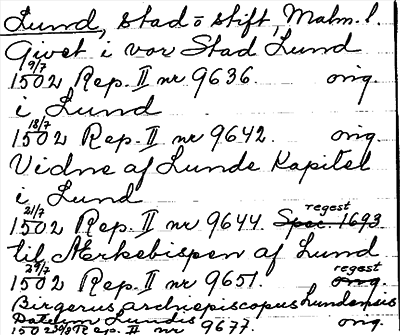 Lund, stad o stift, Malm. l.
Givet i vor Stad Lund
1502 9/7 Rep. II nr 9636. orig.
i Lund
1502 18/7 Rep. II nr 9642. orig.
Vidne af Lunde Kapitel
i Lund
1502 21/7 Rep. II nr 9644. Spec. 1693 regest
til Ærkebispen af Lund
1502 29/7 Rep. II nr 9651. orig. regest
Birgerus archiepiscopus Lundensis
Datum Lundis
1502 Rep. II nr 9677. orig.